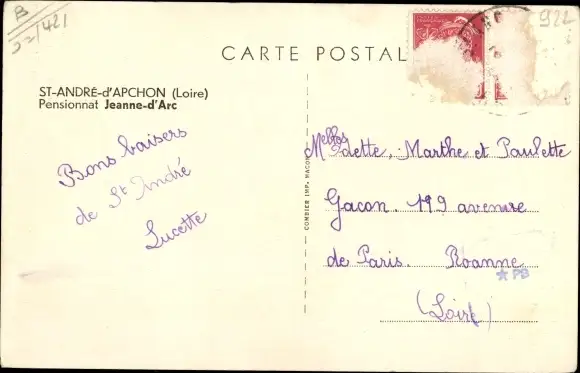 B
22/421
922
CARTE POSTAL
ST-ANDRÉ-d'APCHON (Loire)
Pensionnat Jeanne-d'Arc
Bons baisers
de St André
Lucette
COMBIER IMP. MACON
Melles Odette, Marthe et Paulette
Gacon. 199 avenue
de Paris. Roanne
(Loire)
★ PB